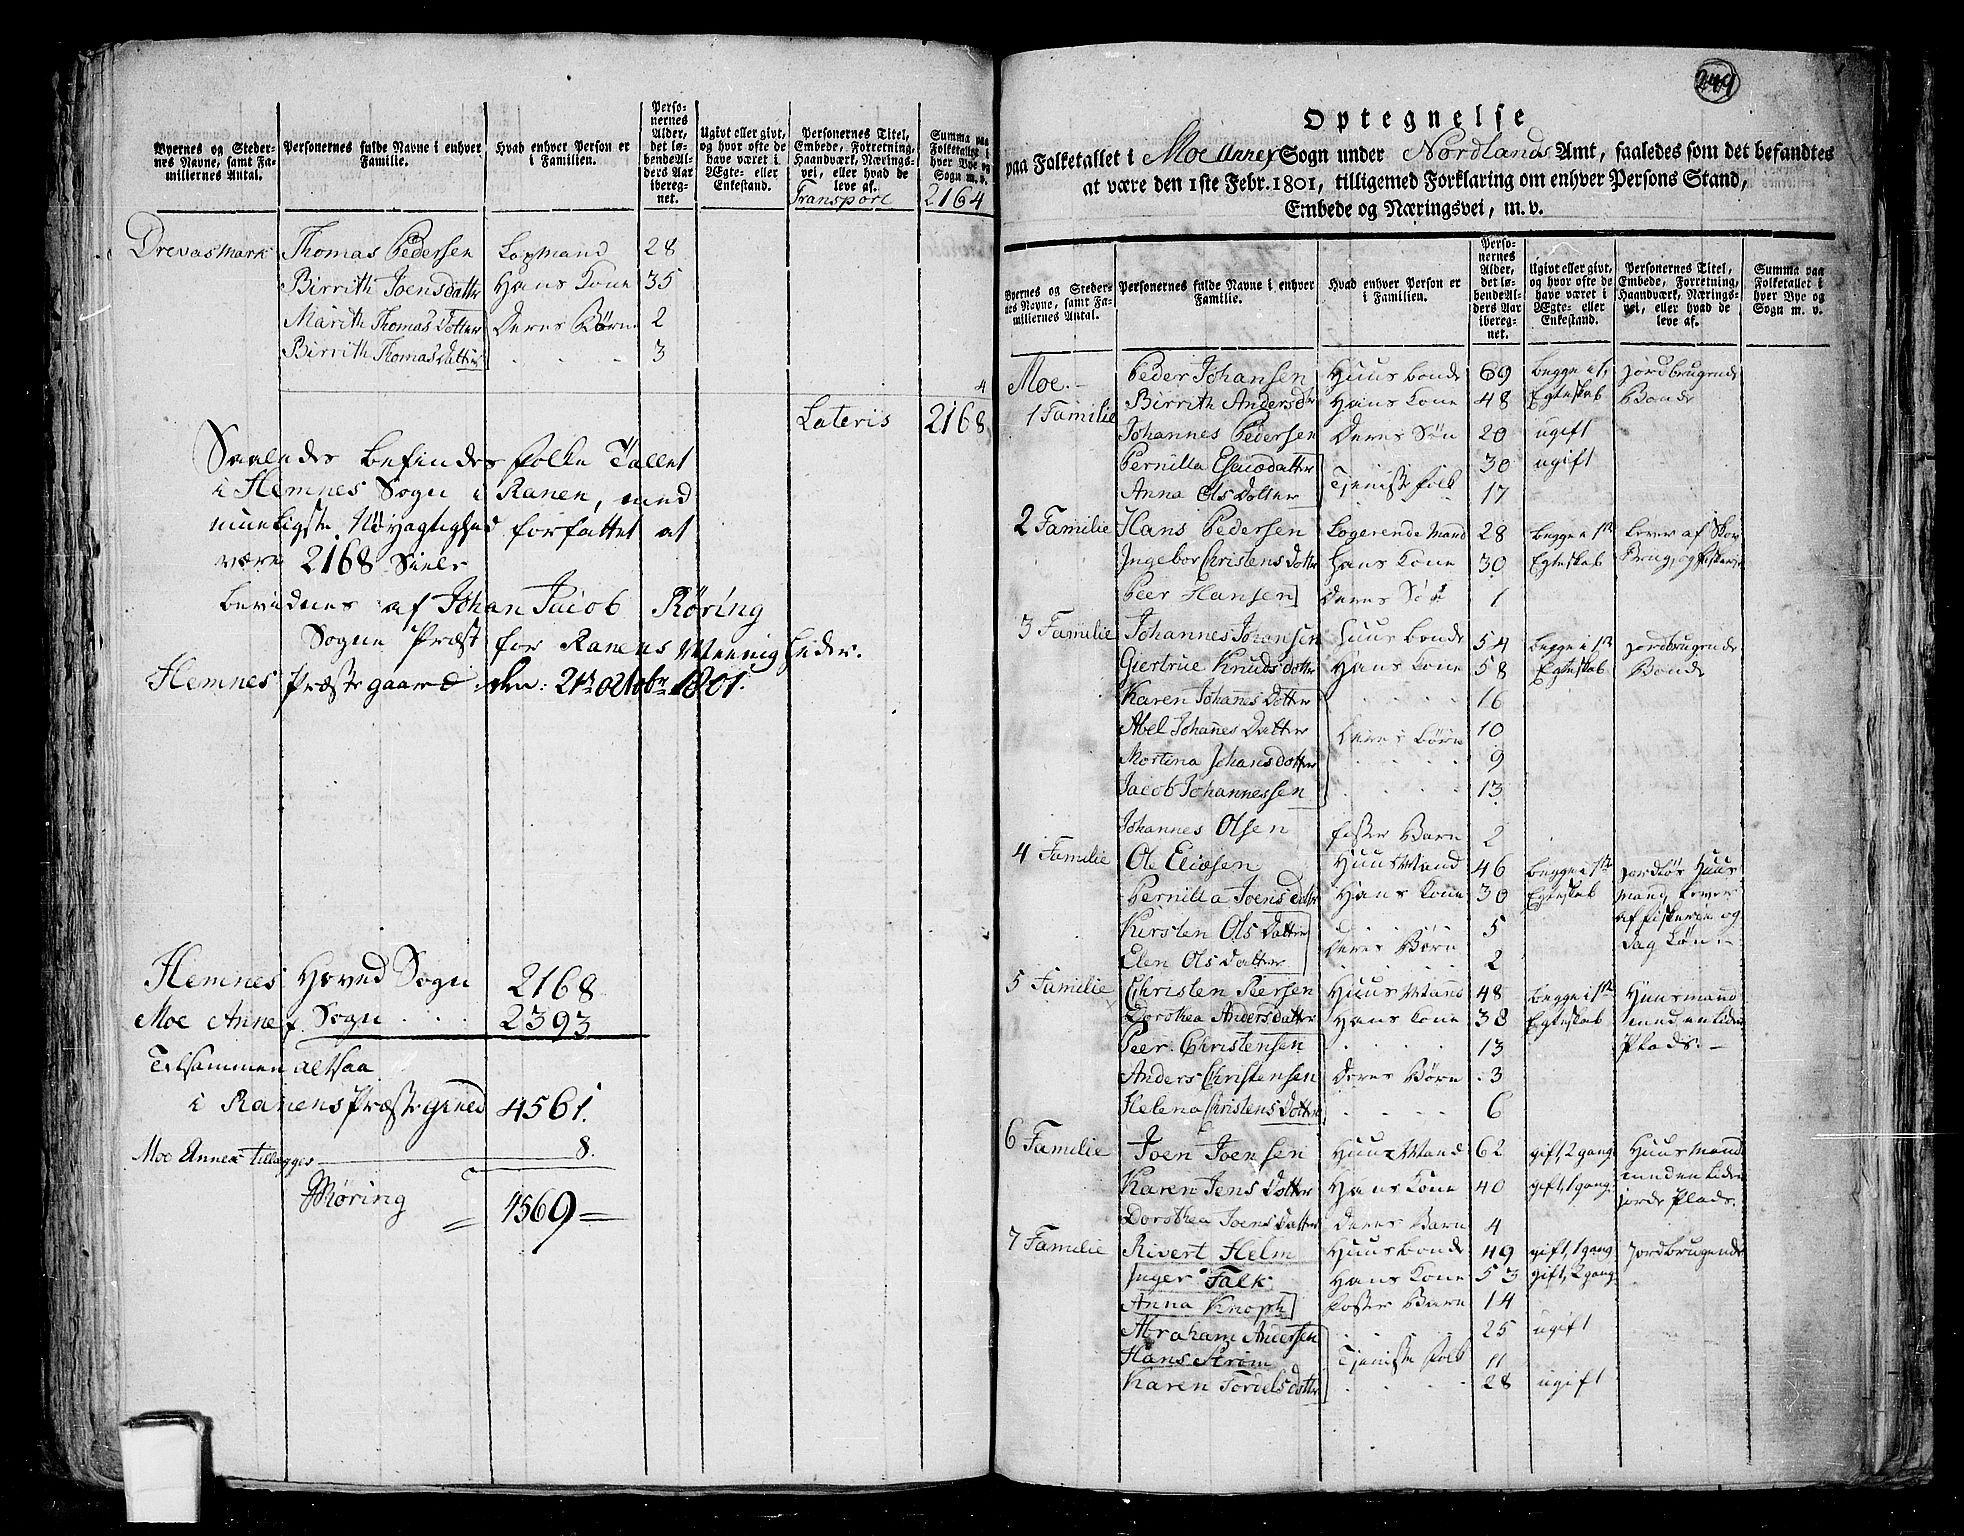 Byernes og Steder-
nes Navne, samt Fa-
miliernes Antal.
Personernes fulde Navne i enhver
Familie.
Hvad enhver Person er
i Familien.
Perso-
nernes
Alder,
det lø-
bende Al-
ders Aar
ibereg-
net.
Ugivt eller givt,
og hvor ofte de
have været i
Ægte- eller
Enkestand.
Personernes Titel,
Embede, Forretning,
Haandværk, Nærings-
vei, eller hvad de
leve af.
Summa paa
Folketallet i
hver Bye og
Sogn m. v.
Transport 2164
Drevasmark Thomas Pedersen Lapmand 28
Birrith Joensdatter Hans Kone 35
Marith Thomas Dotter Deres Børn 2
Birrith Thomas Datter . . . 3
4
Lateris 2168
Saaledes befindes folke Tallet
i Hemnes Sogn i Ranen, med
mueligste Nøyagtighed forfattet at
være 2168 Siele
bevidnes af Johan Jacob Røring
Sogne Præst for Ranens Meenigheder.
Hemnes Præstegaard den: 21de Octobr 1801.
Hemnes Hoved Sogn 2168
Moe Annex Sogn . . . 2393
Tilsammen altsaa
i Ranens Præstegield 4561.
Moe Annex tillægges 8.
Røring 4569
249
Optegnelse
paa Folketallet i Moe Annex Sogn under Nordlands Amt, saaledes som det befandtes
at være den 1ste Febr. 1801, tilligemed Forklaring om enhver Persons Stand,
Embede og Næringsvei, m. v.
Byernes og Steder-
nes Navne, samt Fa-
miliernes Antal.
Personernes fulde Navne i enhver
Familie.
Hvad enhver Person er
i Familien.
Perso-
nernes
Alder,
det lø-
bende Al-
ders Aar
ibereg-
net.
Ugivt eller givt,
og hvor ofte de
have været i
Ægte- eller
Enkestand.
Personernes Titel,
Embede, Forretning,
Haandværk, Nærings-
vei, eller hvad de
leve af.
Summa paa
Folketallet i
hver Bye og
Sogn m. v.
Moe. Peder Johansen Huusbonde 69 begge i 1. Jordbrugende
1 Familie Birrith Andersdtr Hans Kone 48 Egteskab Bonde
Johannes Pedersen Deres Søn 20 ugift
Pernilla Esaiædatter Tjeniste folk 30 ugift
Anna Ols Dotter 17
2 Familie Hans Pedersen Logerende Mand 28 begge i 1ste Lever af Skov
Ingebor Christens Dotter Hans Kone 30 Egteskab Brug, og fiskerie
Peer Hansen Deres Søn 1
3 Familie Johannes Johansen Huusbonde 54 begge i 1ste Jordbrugende
Giertrue Knuds dotter Hans Kone 58 Egteskab Bonde
Karen Johannes Dotter . . . . 16
Abel Johannes Datter Deres Børn 10
Mortina Johans dotter . . . . 9
Jacob Johannessen . . . . 13
Johannes Olsen foster Barn 2
4 Familie Ole Eliæsen Huusmand 46 begge i 1ste jordløs Huus
Pernilla Joens datter Hans Kone 30 Egteskab mand, lever
Kirsten Ols Datter Deres Børn 5 af fiskerie og
Elen Ols Datter 2 Dag Løn.
5 Familie Christen Peersen Huusmand 48 begge i 1ste Huusmand
Dorothea Anders datter Hans Kone 38 Egteskab med en liden
Peer Christensen . . . . 13 Plads.
Anders Christensen Deres Børn 3
Helena Christens Dotter . . . . 6
6 Familie Joen Joensen Huusmand 62 gift, 2 gang Huusmand
Karen Jens Dotter Hans Kone 40 gift, 1 gang. med en liden
Dorothea Joens Datter Deres Barn 4 jorde Plads.
7 Familie Rivert Helm Huusbonde 49 gift, 1 gang Jordbrugende
Inger Falk Hans Kone 53 gift, 2 gang
Anna Knoph Foster Barn 14
Abraham Andersen . . . . 25 ugift
Hans Strøm Tjeniste folk 11
Karen Tordels dotter . . . . 28 ugift